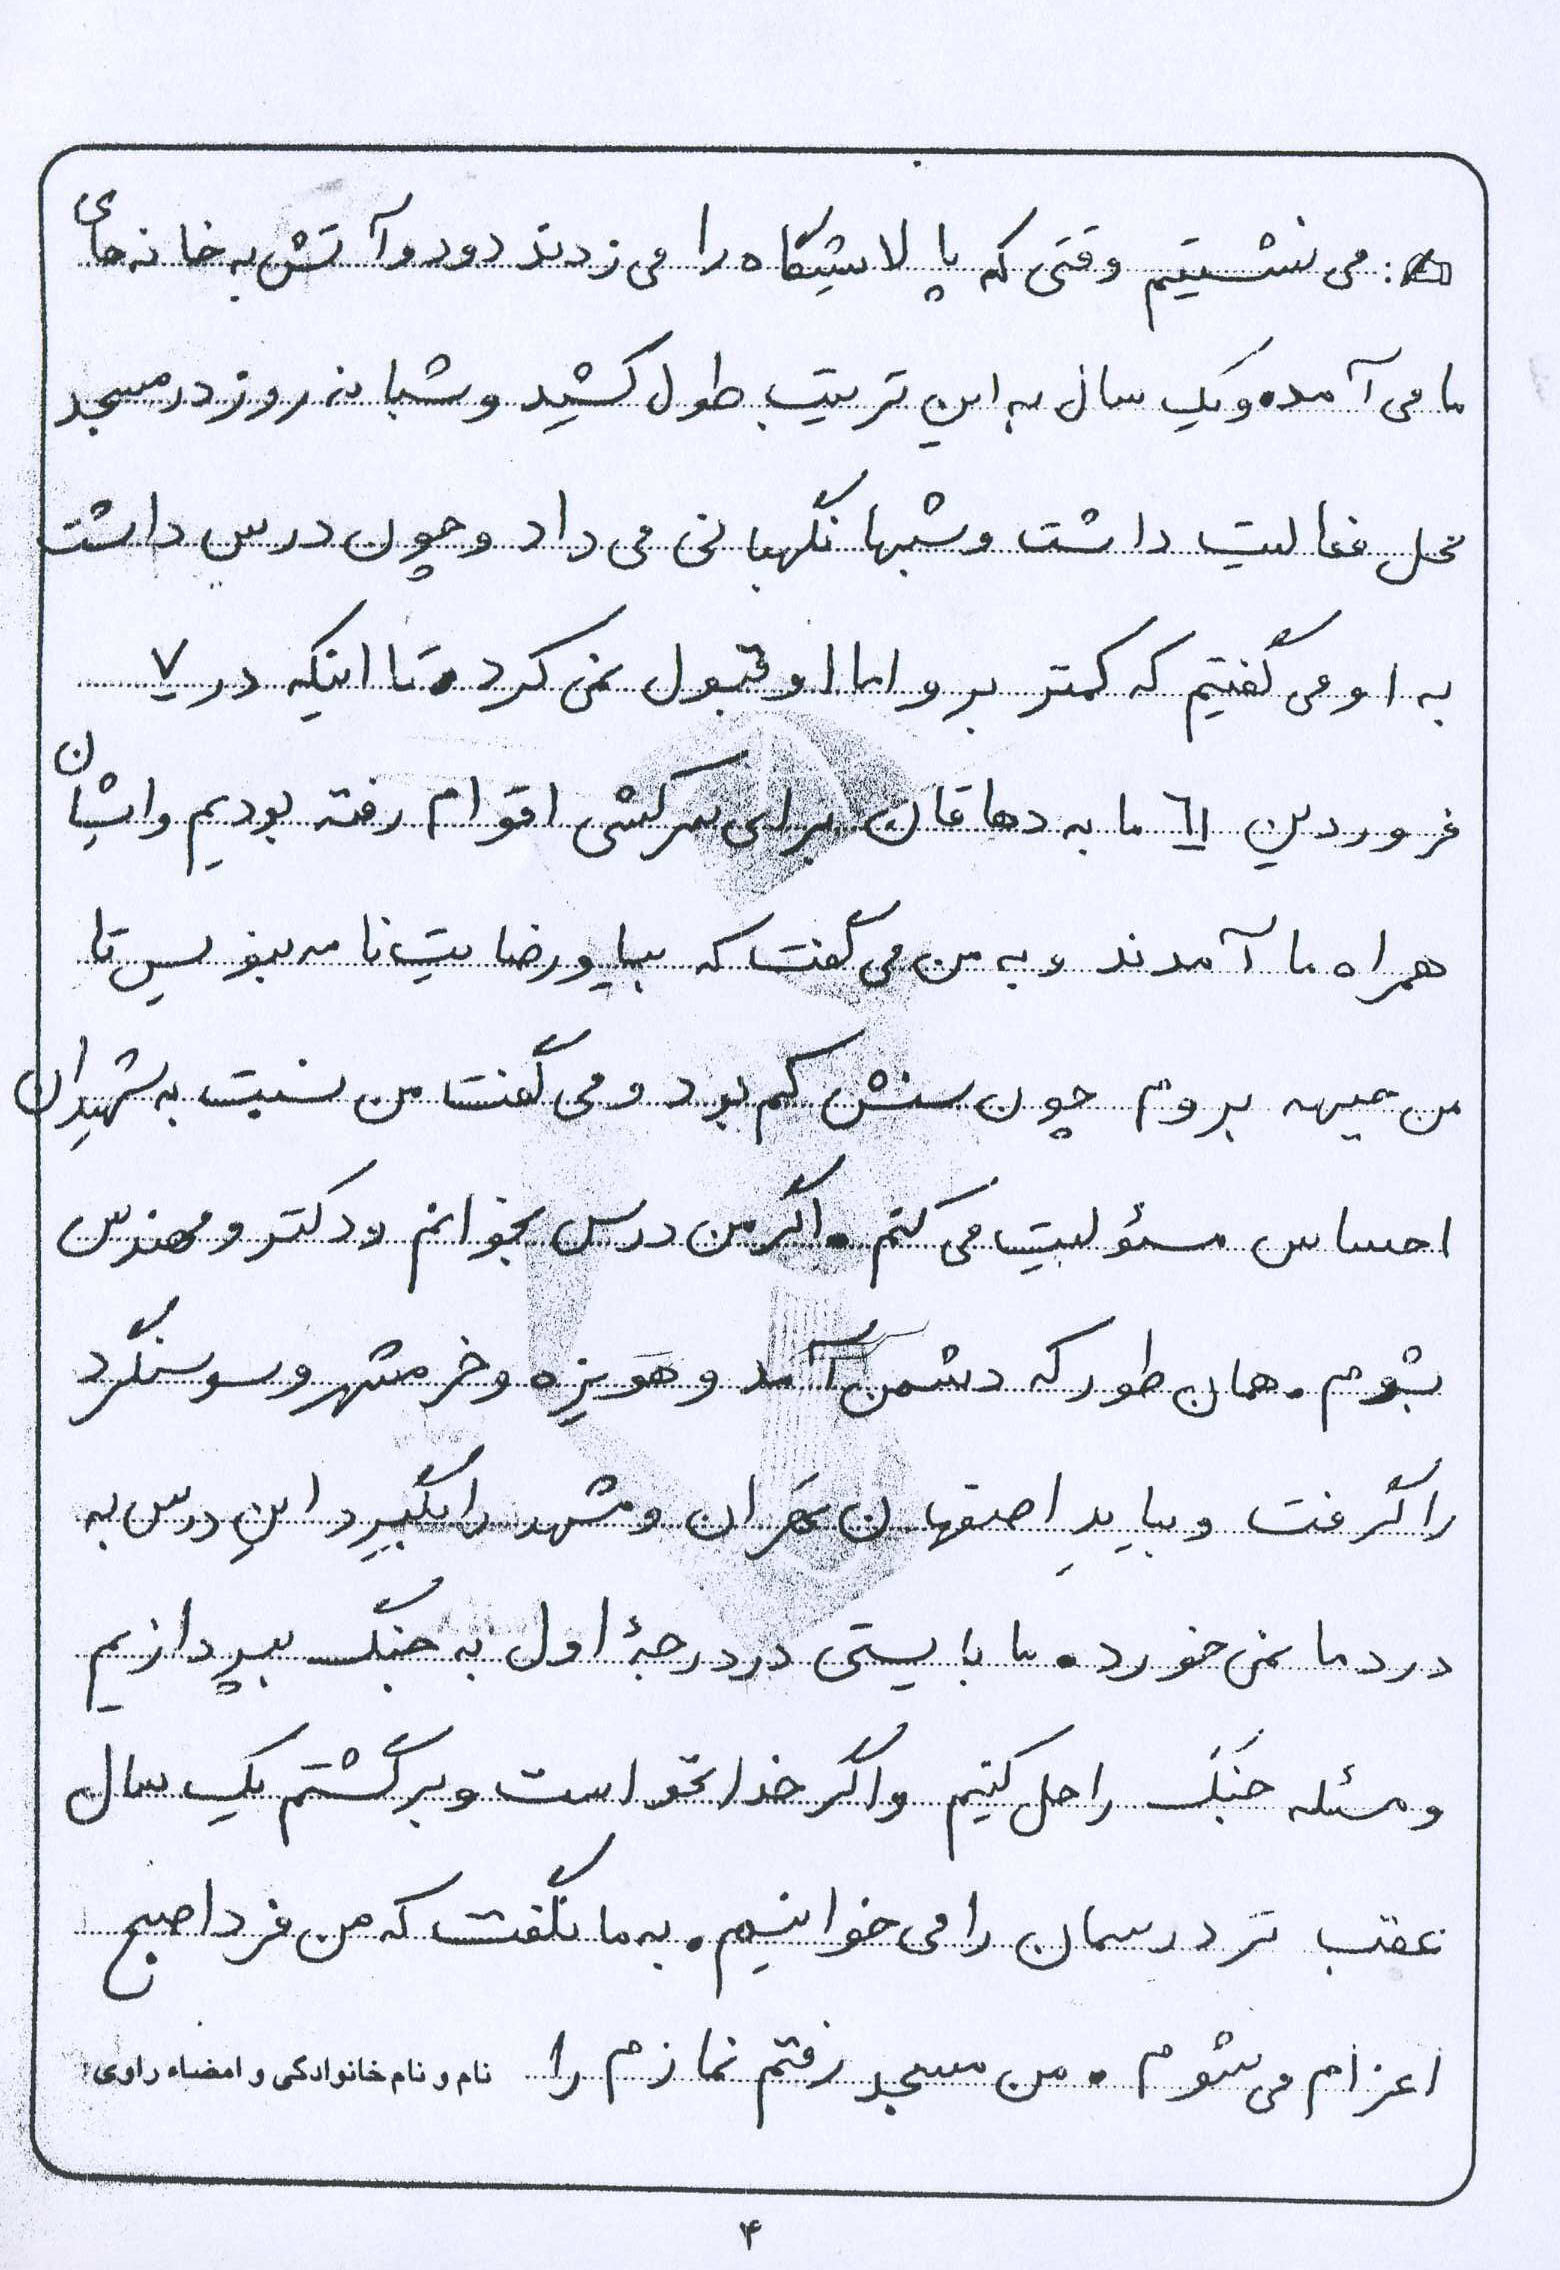 می نشستیم وقتی که پالایشگاه را می زدند دود و آتش به خانه های
ما می آمده و یک سال به این ترتیب طول کشید و شبانه روز در مسجد
محل فعالیت داشت و شبها نگهبانی می داد و چون درس داشت
به او می گفتیم که کمتر برو اما او قبول نمی کرد. تا اینکه در ۷
فروردین ٦١ ما به دهاقان برای سرکشی اقوام رفته بودیم و ایشان
همراه ما آمدند و به من می گفت که بیا و رضایت نامه بنویس تا
من جبهه بروم چون سنش کم بود و می گفت من نسبت به شهیدان
احساس مسئولیت می کنم. اگر من درس بخوانم و دکتر و مهندس
بشوم. همان طور که دشمن آمد و هویزه و خرمشهر و سوسنگرد
را گرفت و بیاید اصفهان تهران و مشهد را بگیرد این درس به
درد ما نمی خورد. ما بایستی در درجهٔ اول به جنگ بپردازیم
و مسئله جنگ را حل کنیم و اگر خدا نخواست و برگشتم یک سال
عقب تر درسمان را می خوانیم. به ما نگفت که من فردا صبح
اعزام می شوم. من مسجد رفتم نمازم را
نام و نام خانوادگی و امضاء راوی:
۴